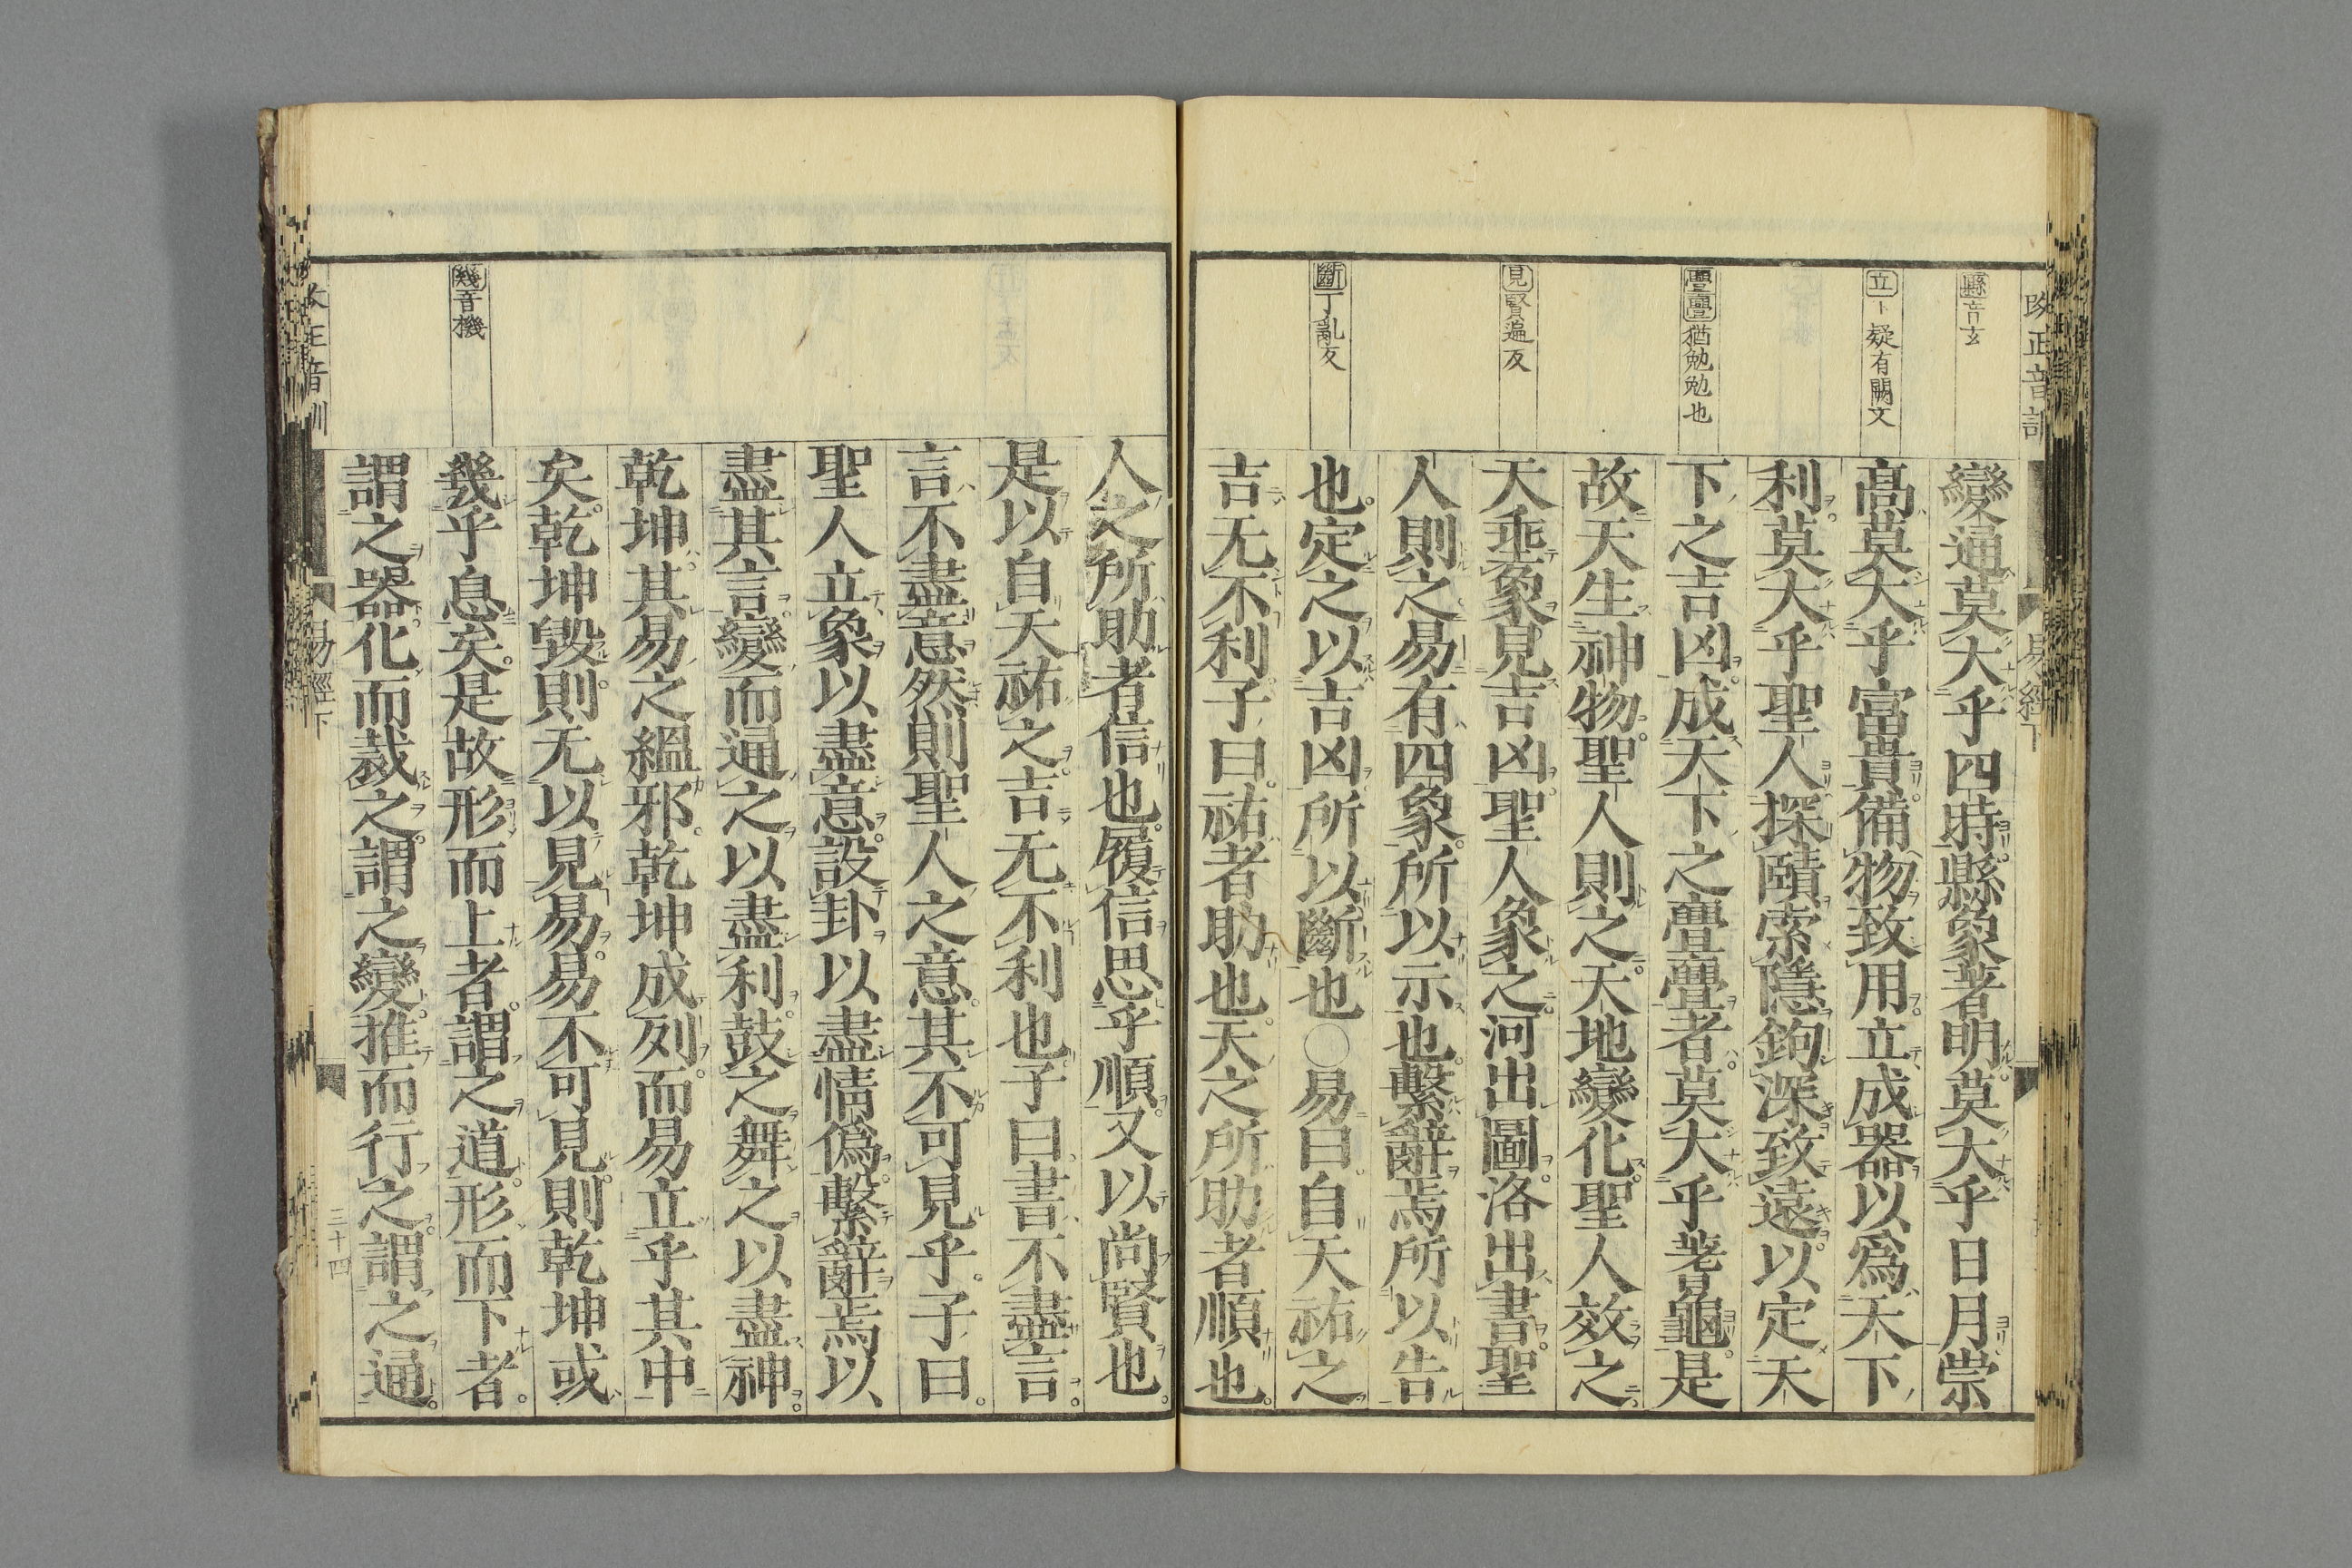 縣音玄
立卜疑有闕文
亹亹猶勉勉也
見賢遍反
斷丁亂反
變通莫大乎四時縣象著明莫大乎日月崇
高莫大乎富貴備物致用立成器以爲天下
利莫大乎聖人探賾索隱鉤深致遠以定天
下之吉凶成天下之亹亹者莫大乎蓍龜是
故天生神物聖人則之天地變化聖人效之
天垂象見吉凶聖人象之河出圖洛出書聖
人則之易有四象所以示也繫辭焉所以告
也定之以吉凶所以斷也○易曰自天祐之
吉无不利子曰祐者助也天之所助者順也
幾音機
人之所助者信也履信思乎順又以尚賢也
是以自天祐之吉无不利也子曰書不盡言
言不盡意然則聖人之意其不可見乎子曰
聖人立象以盡意設卦以盡情僞繫辭焉以
盡其言變而通之以盡利鼓之舞之以盡神
乾坤其易之縕邪乾坤成列而易立乎其中
矣乾坤毀則无以見易易不可見則乾坤或
幾乎息矣是故形而上者謂之道形而下者
謂之器化而裁之謂之變推而行之謂之通
易經下
三十四